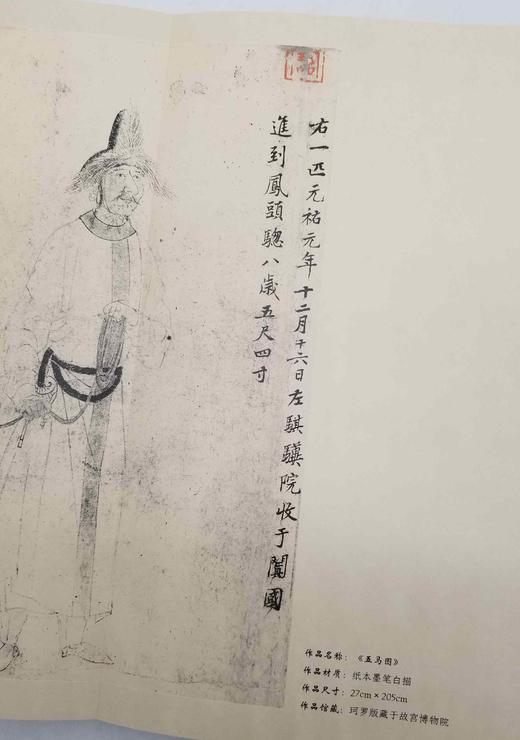 右一匹元祐元年十二月十六日左騏驥院收于闐國
進到鳳頭驄八歲五尺四寸
作品名称：《五马图》
作品材质：纸本墨笔白描
作品尺寸：27cm×205cm
作品馆藏：珂罗版藏于故宫博物院